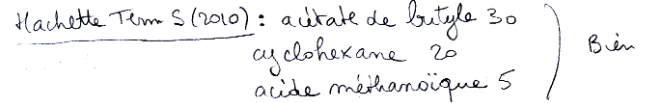 Hachette Term S (2010) : acétate de butyle 30
cyclohexane 20
acide méthanoïque 5
Bien